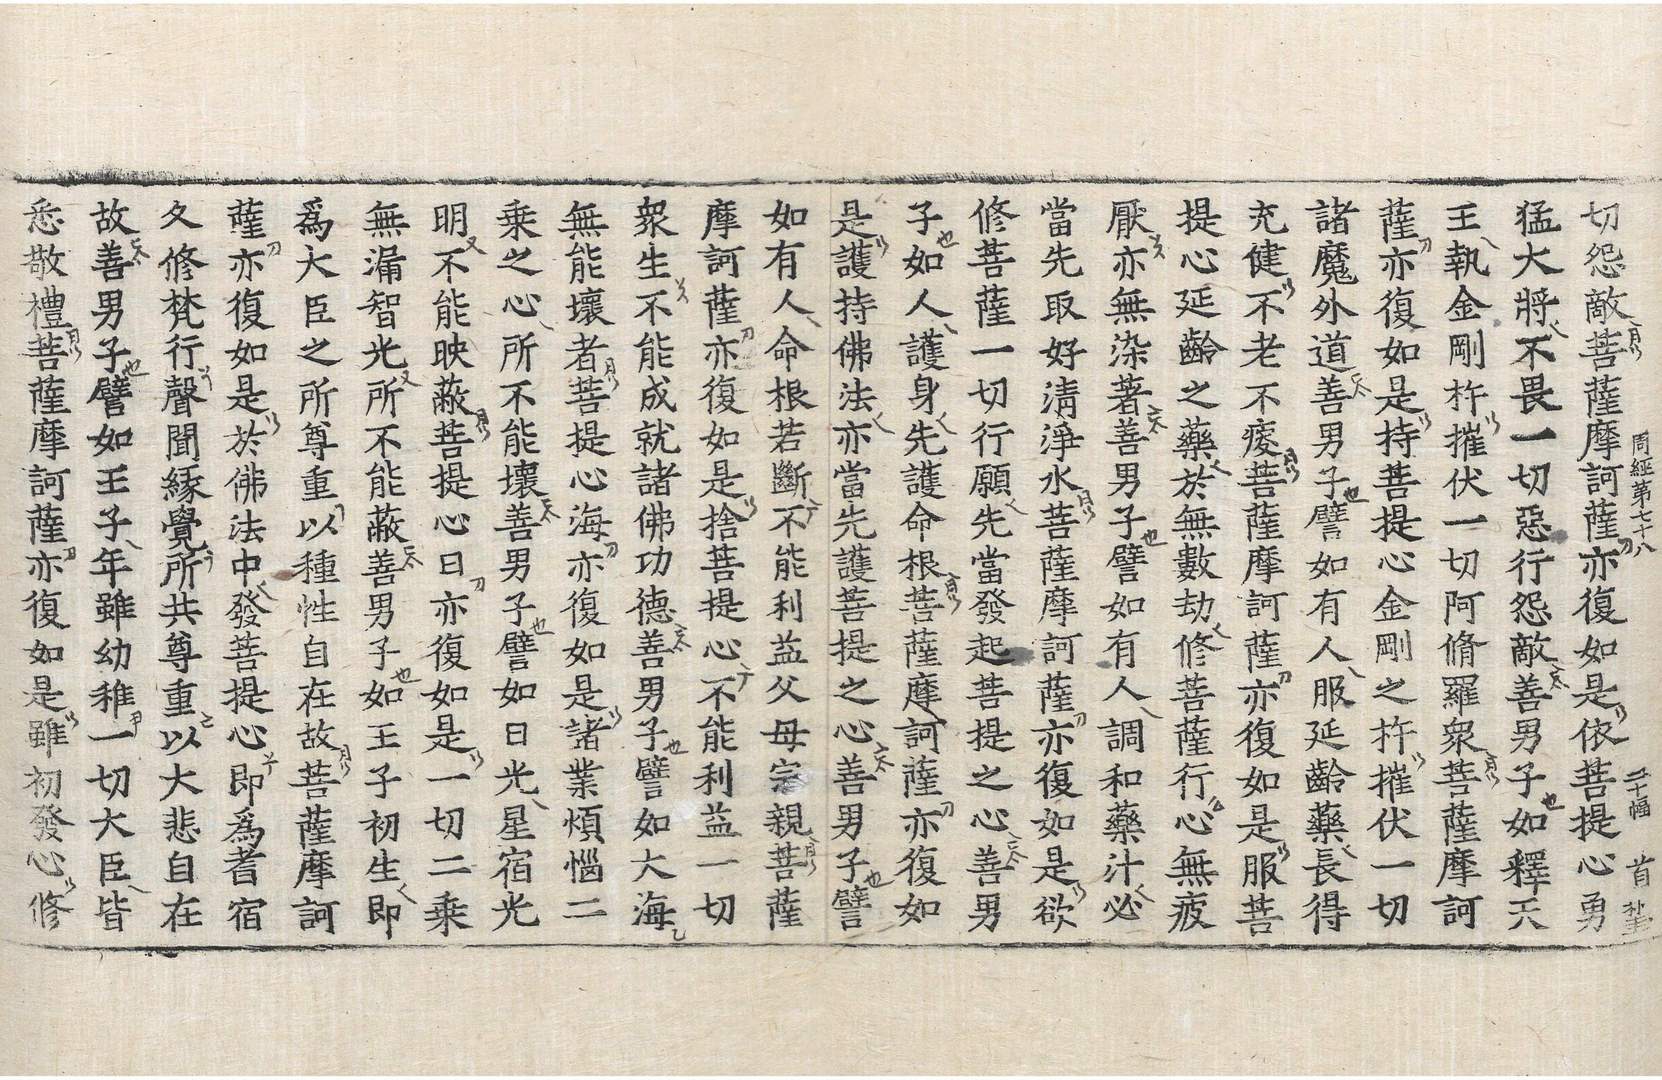 周經第七十八 二十幅 首 張
切怨敵菩薩摩訶薩亦復如是依菩提心勇
猛大將不畏一切惡行怨敵善男子如釋天
王執金剛杵摧伏一切阿脩羅衆菩薩摩訶
薩亦復如是持菩提心金剛之杵摧伏一切
諸魔外道善男子譬如有人服延齡藥長得
充健不老不瘦菩薩摩訶薩亦復如是服菩
提心延齡之藥於無數劫修菩薩行心無疲
厭亦無染著善男子譬如有人調和藥汁必
當先取好清淨水菩薩摩訶薩亦復如是欲
修菩薩一切行願先當發起菩提之心善男
子如人護身先護命根菩薩摩訶薩亦復如
是護持佛法亦當先護菩提之心善男子譬
如有人命根若斷不能利益父母宗親菩薩
摩訶薩亦復如是捨菩提心不能利益一切
衆生不能成就諸佛功德善男子譬如大海
無能壞者菩提心海亦復如是諸業煩惱二
乘之心所不能壞善男子譬如日光星宿光
明不能映蔽菩提心日亦復如是一切二乘
無漏智光所不能蔽善男子如王子初生即
爲大臣之所尊重以種性自在故菩薩摩訶
薩亦復如是於佛法中發菩提心即爲耆宿
久修梵行聲聞緣覺所共尊重以大悲自在
故善男子譬如王子年雖幼稚一切大臣皆
悉敬禮菩薩摩訶薩亦復如是雖初發心修